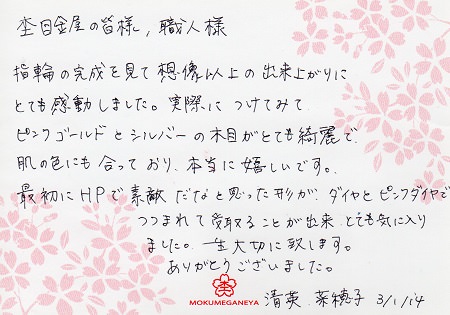 杢目金屋の皆様、職人様
指輪の完成を見て想像以上の出来上がりに
とても感動しました。実際につけてみて
ピンクゴールドとシルバーの木目がとても綺麗で
肌の色にも合っており、本当に嬉しいです。
最初にHPで素敵だなと思った形が、ダイヤとピンクダイヤで
つつまれて受取ることが出来とても気に入り
ました。一生大切に致します。
ありがとうございました。
MOKUMEGANEYA
清英 菜穂子 3/1/14